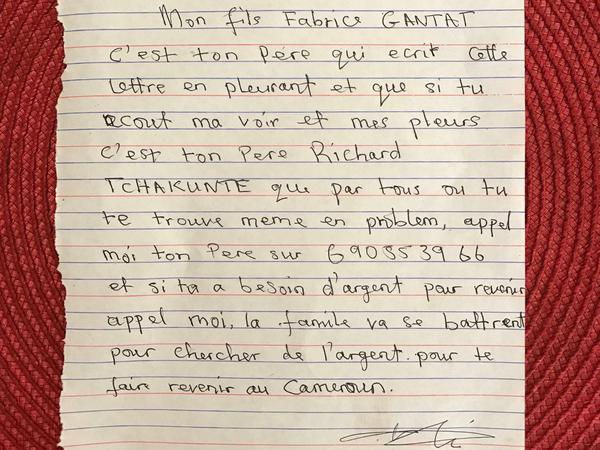 Mon fils Fabrice GANTAT
C'est ton Père qui ecrit cette
lettre en pleurant et que si tu
ecout ma voir et mes pleurs
c'est ton Pere Richard
TCHAKUNTE que par tous ou tu
te trouve meme en problem, appel
moi ton Pere sur 690553966
et si tu a besoin d'argent pour revenir
appel moi, la famile va se battrent
pour chercher de l'argent pour te
faire revenir au Cameroun.